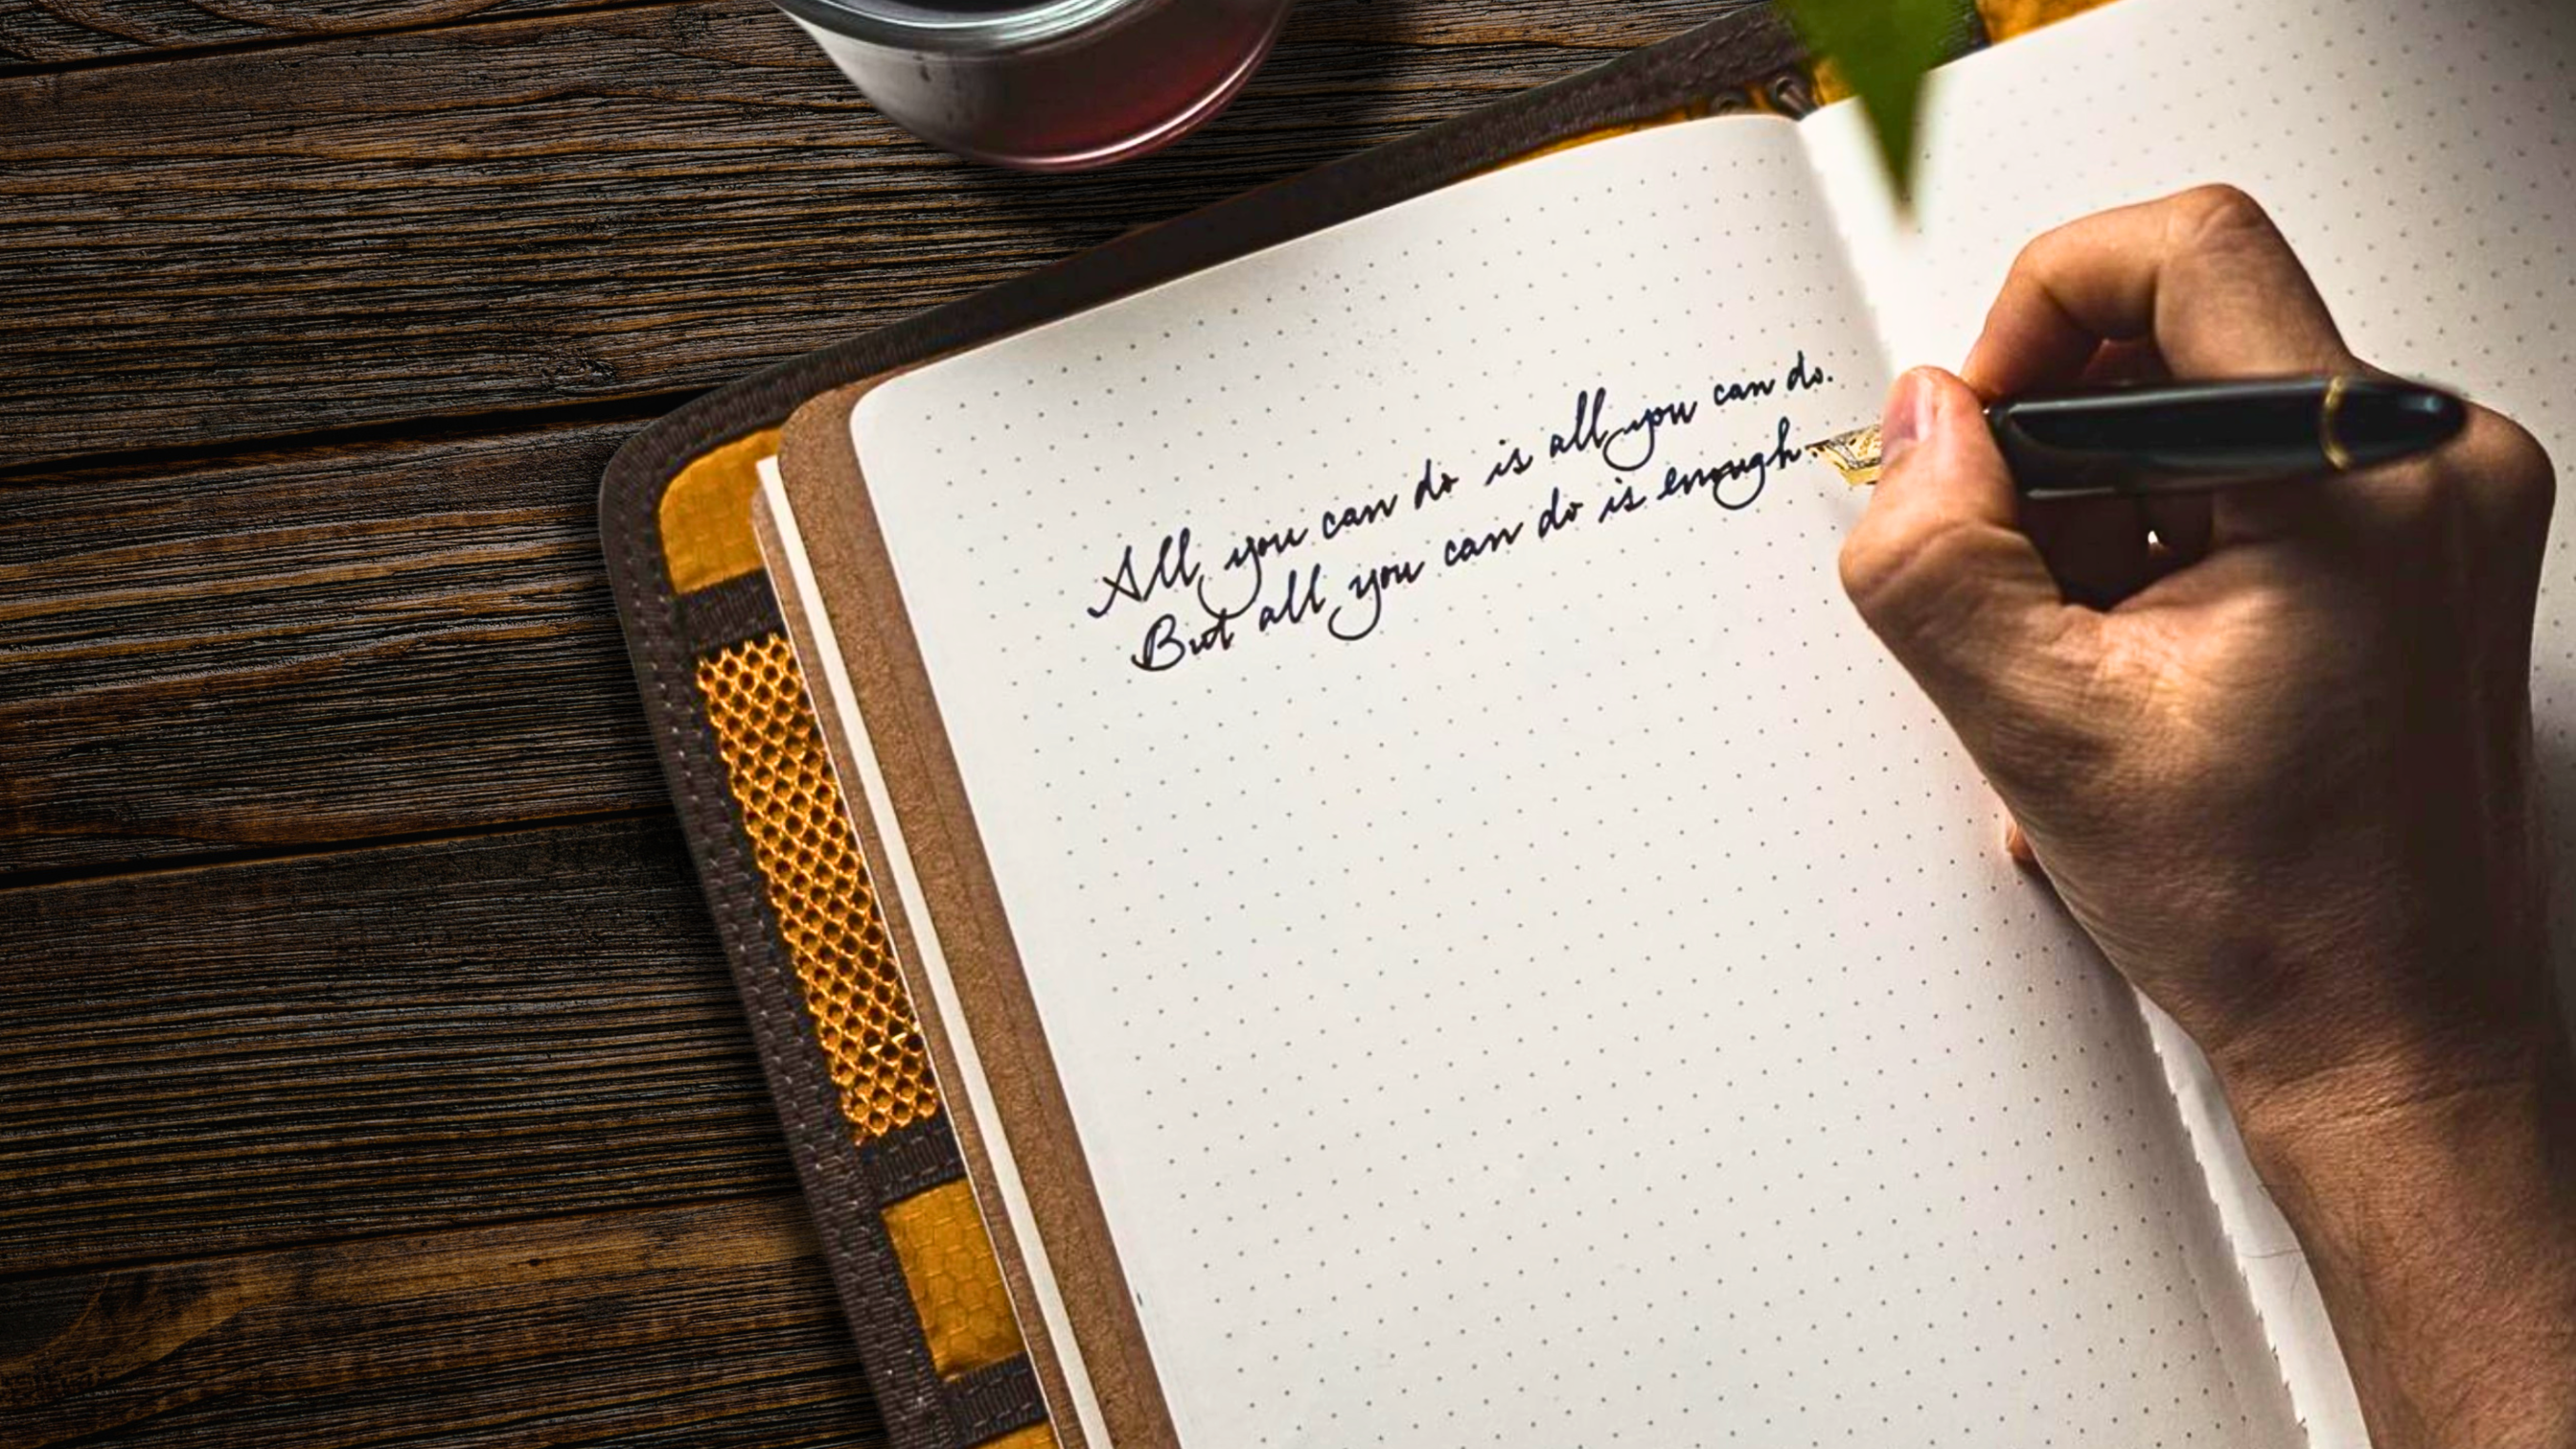 All you can do is all you can do.
But all you can do is enough.